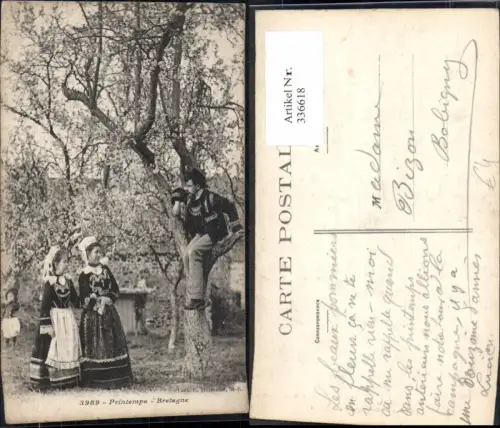 3989 - Printemps - Bretagne
Artikel Nr.
336618
CARTE POSTAL
Correspondance
Madame
Bizon
Bobigny
Les beaux pommiers
en fleurs ça ne te
rappelle rien-moi
ça me rappelle quand
dans les printemps
antérieurs nous allions
faire notre tour à la
campagne il y a
une année
Lucien